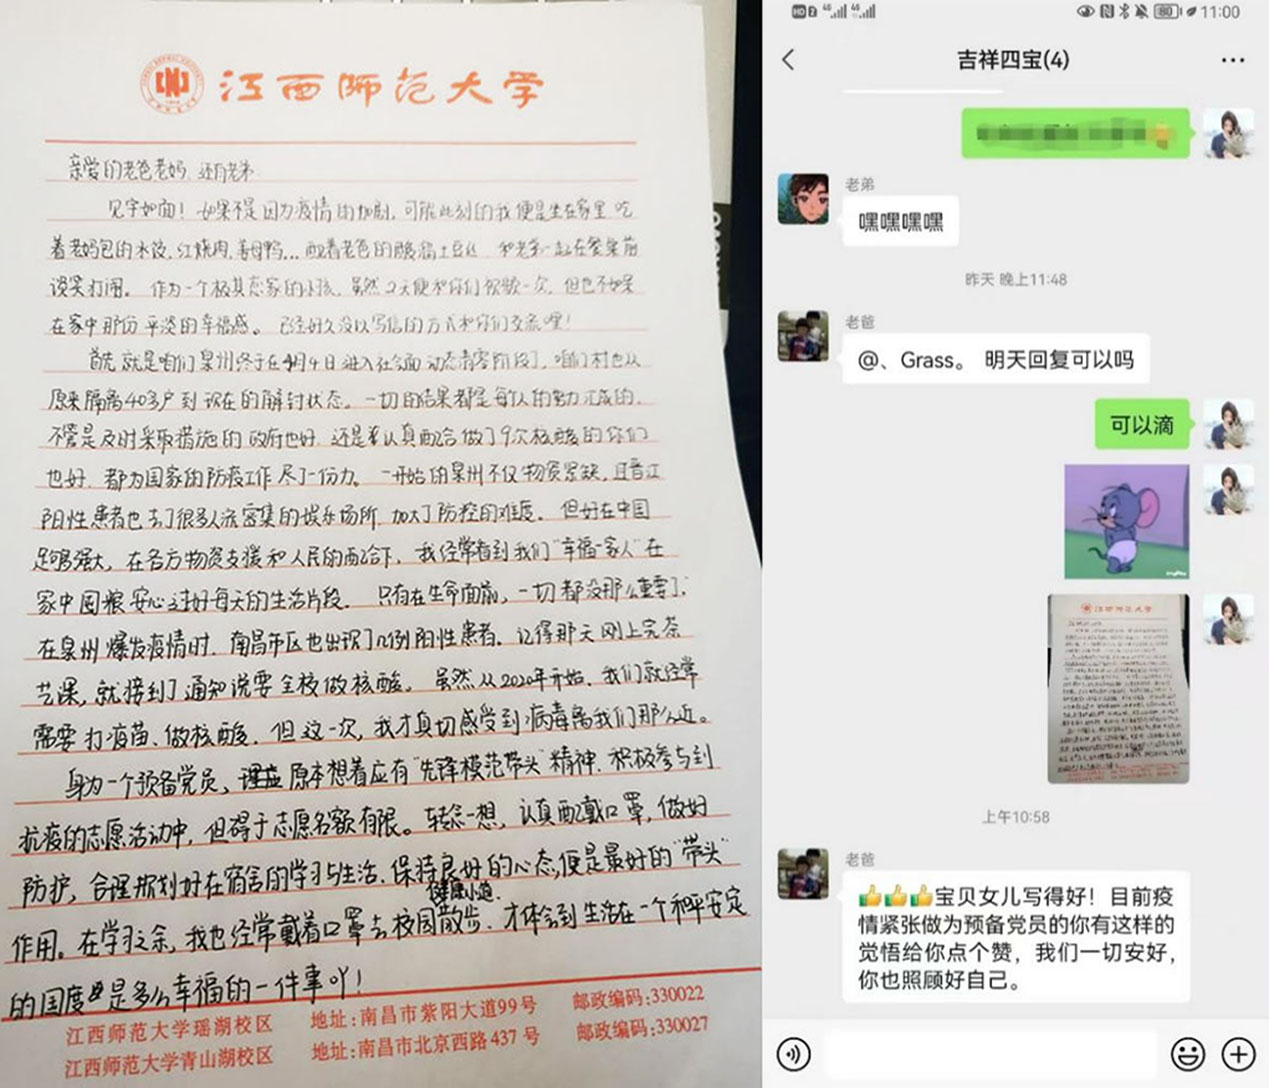 江西师范大学
亲爱的老爸老妈、还有老弟:
见字如面！如果不是因为疫情的加剧，可能此刻的我便是坐在家里吃
着老妈包的水饺、红烧肉、姜母鸭...配着老爸的酸辣土豆丝 和老弟一起在餐桌前
谈笑打闹。作为一个极其恋家的小孩，虽然2天便和你们视频一次，但也不如来
在家中那份平淡的幸福感。已经好久没以写信的方式和你们交流哩！
首先就是咱们泉州终于在4月4日进入社会面动态清零阶段了，咱们村也从
原来隔离40多户到现在的解封状态。一切的结果都是每个人的努力汇成的，
不管是及时采取措施的政府也好，还是认真配合做了9次核酸的你们
也好，都为国家的防疫工作尽了一份力。一开始的泉州不仅物资紧缺，且晋江
阳性患者也去了很多人流密集的娱乐场所，加大了防控的难度。但好在中国
足够强大，在各方物资支援和人民的配合下，我经常看到我们“幸福一家人”在
家中囤粮安心过好每天的生活片段。只有在生命面前，一切都没那么重要了。
在泉州爆发疫情时，南昌市区也出现了几例阳性患者。记得那天刚上完茶
艺课，就接到了通知说要全校做核酸。虽然从2020年开始，我们就经常
需要打疫苗、做核酸，但这一次，我才真切感受到病毒离我们那么近。
身为一个预备党员，原本想着应有“先锋模范带头”精神，积极参与到
抗疫的志愿活动中，但碍于志愿名额有限。转念一想，认真配戴口罩，做好
防护，合理规划好在宿舍的学习与生活、保持良好的心态，便是最好的“带头”
作用。在学习之余，我也经常戴着口罩去校园健康小道散步，才体会到生活在一个和平安定
的国度是多么幸福的一件事吖！
江西师范大学瑶湖校区 地址:南昌市紫阳大道99号 邮政编码:330022
江西师范大学青山湖校区 地址:南昌市北京西路437号 邮政编码:330027
HD 2 4G 4G 80 11:00
吉祥四宝(4)
老弟
嘿嘿嘿嘿
昨天 晚上11:48
老爸
@、Grass。 明天回复可以吗
可以滴
江西师范大学
上午10:58
老爸
👍👍👍宝贝女儿写得好！目前疫
情紧张做为预备党员的你有这样的
觉悟给你点个赞，我们一切安好，
你也照顾好自己。